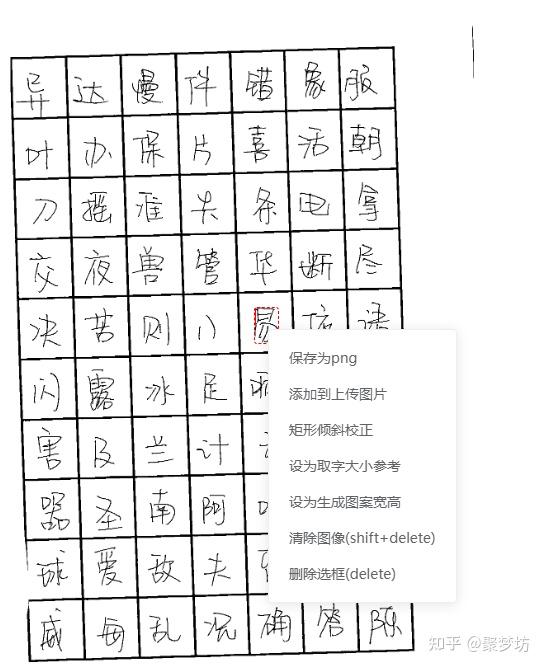 异 达 慢 件 错 象 服
叶 办 保 片 喜 活 朝
刀 摇 准 条 电 拿
交 夜 兽 管 华 断 尽
决 苦 则 八 易 语
闪 露 冰 足
害 及 兰 计
器 圣 南 阿
球 爱 敌 夫
威 每 乱 确 答 陈
保存为png
添加到上传图片
矩形倾斜校正
设为取字大小参考
设为生成图案宽高
清除图像(shift+delete)
删除选框(delete)
知乎 @聚梦坊